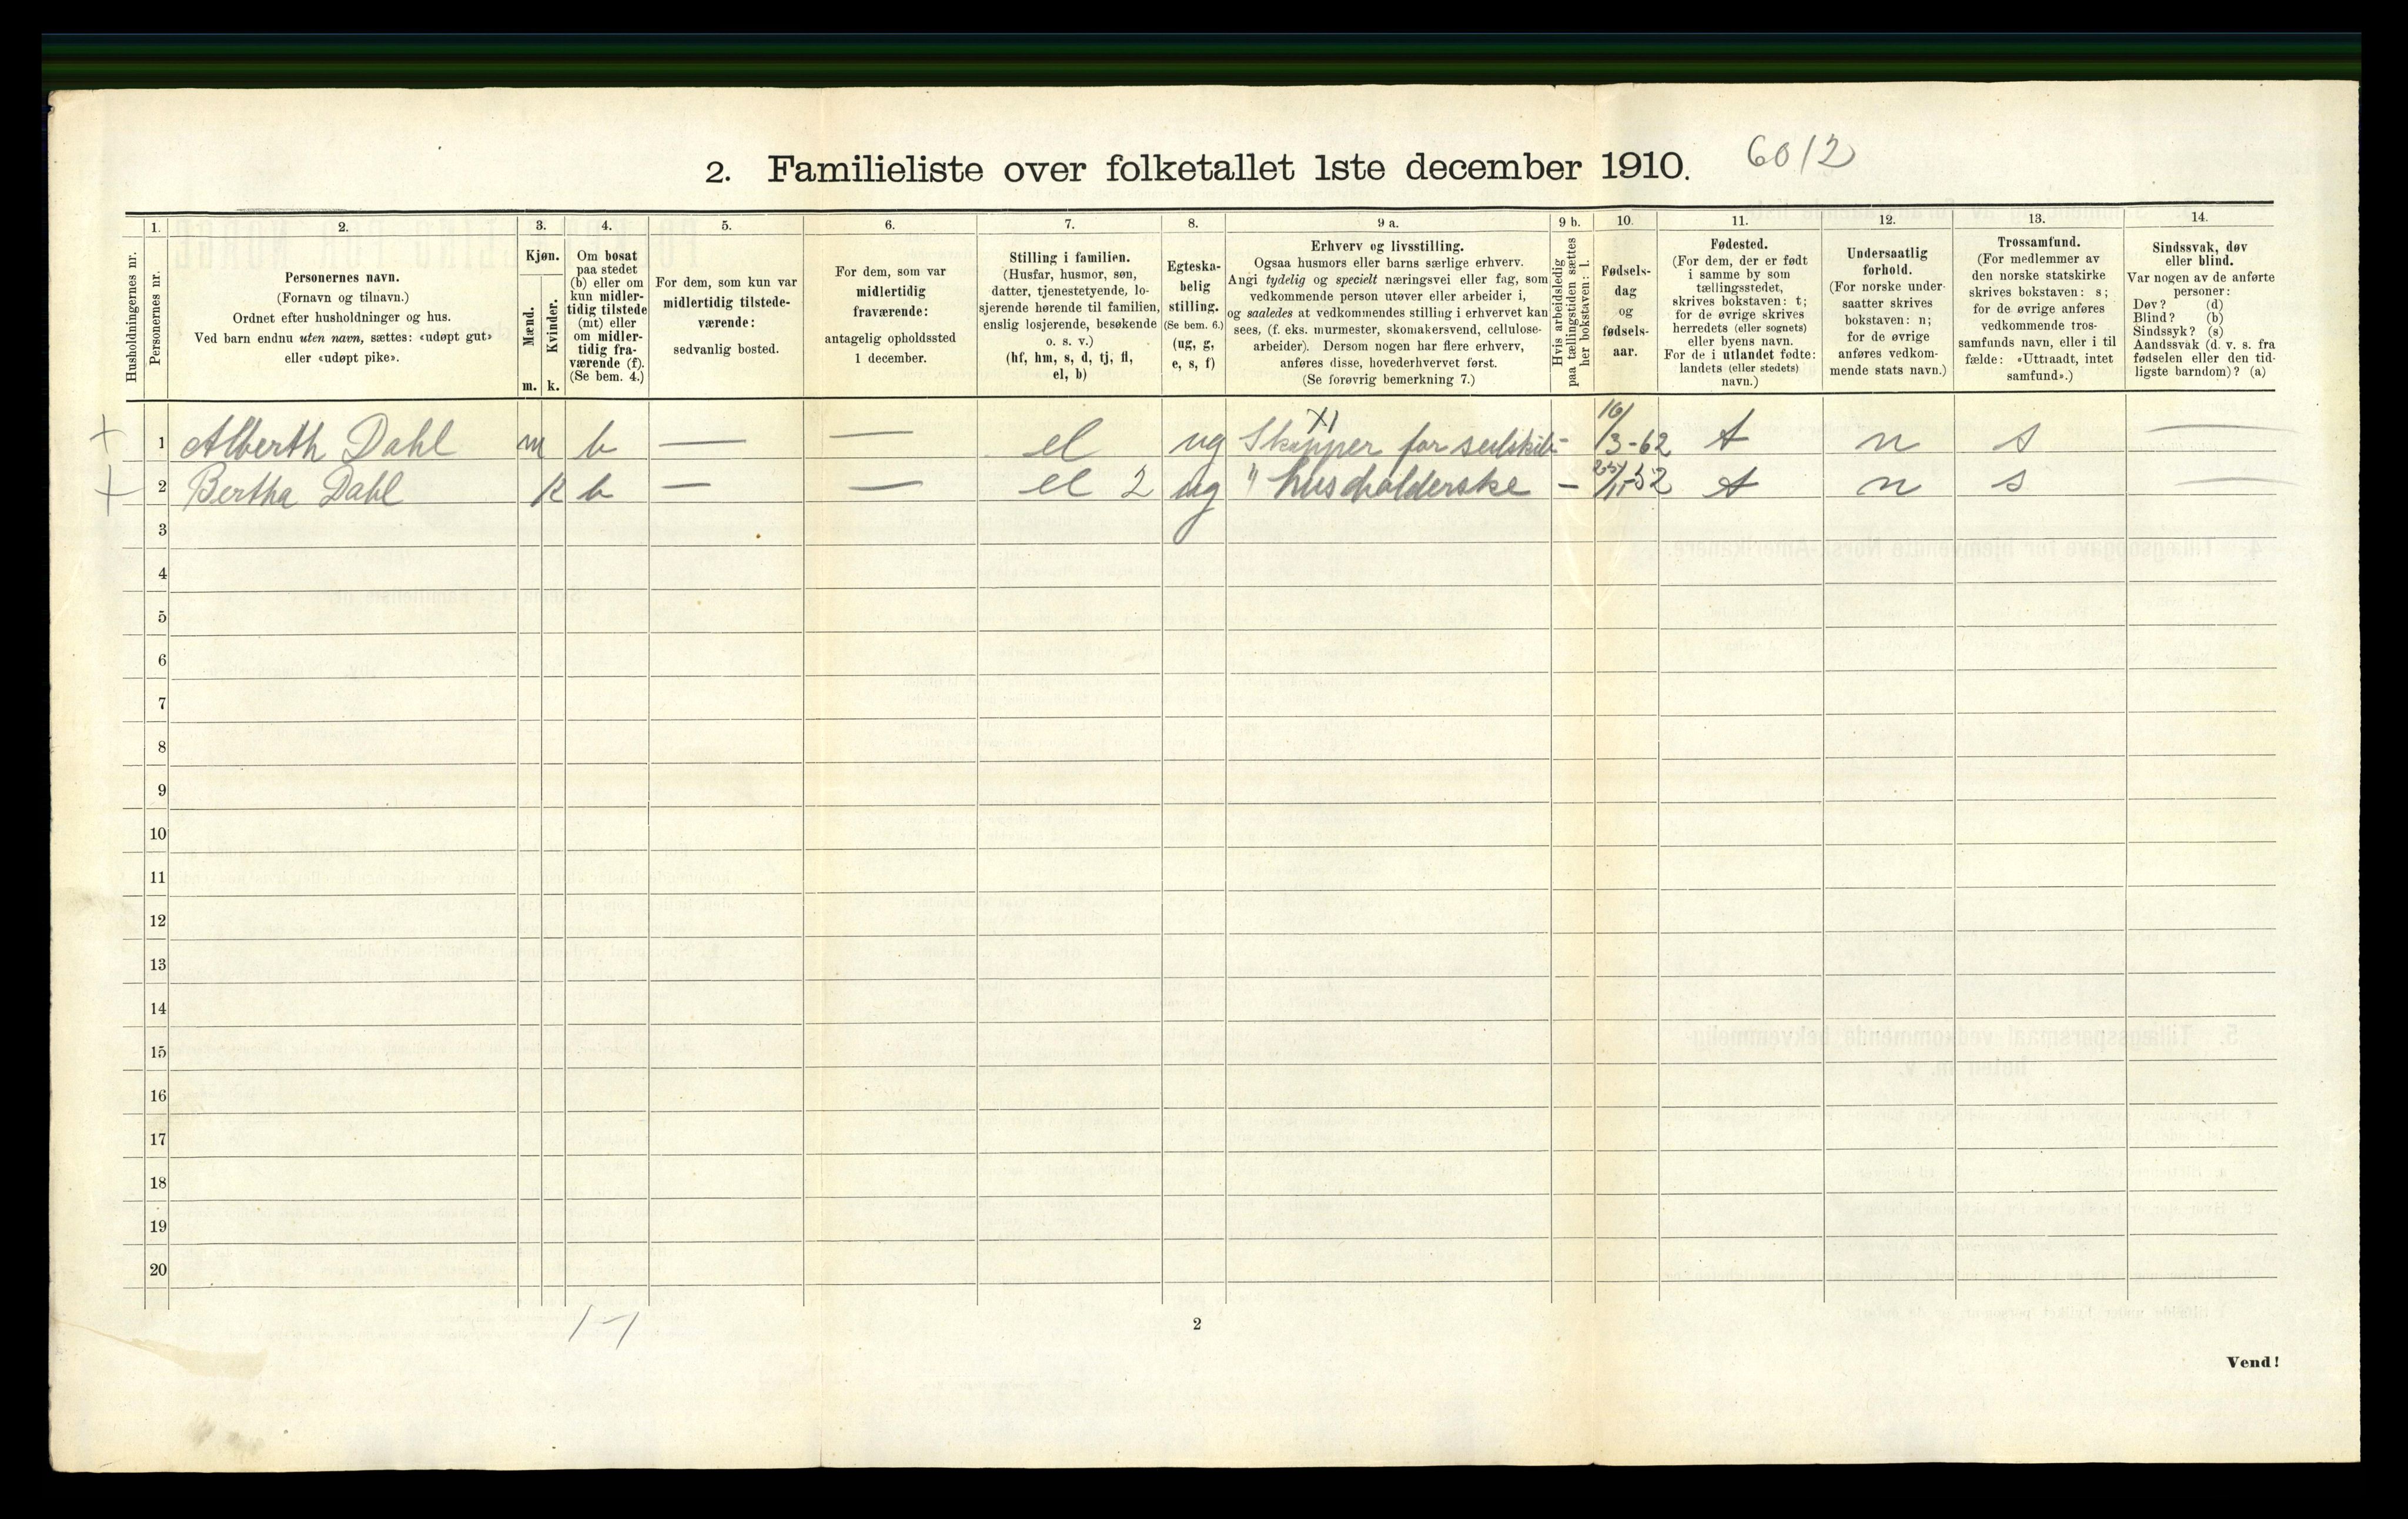 2. Familieliste over folketallet 1ste december 1910. 6012
1. 2. 3. 4. 5. 6. 7. 8. 9 a. 9 b. 10. 11. 12. 13. 14.
Husholdningernes nr.
Personernes nr.
Personernes navn.
(Fornavn og tilnavn.)
Ordnet efter husholdninger og hus.
Ved barn endnu uten navn, sættes: «udøpt gut»
eller «udøpt pike».
Kjøn.
Mænd.
Kvinder.
m. k.
Om bosat
paa stedet
(b) eller om
kun midler-
tidig tilstede
(mt) eller
om midler-
tidig fra-
værende (f).
(Se bem. 4.)
For dem, som kun var
midlertidig tilstede-
værende:
sedvanlig bosted.
For dem, som var
midlertidig
fraværende:
antagelig opholdssted
1 december.
Stilling i familien.
(Husfar, husmor, søn,
datter, tjenestetyende, lo-
sjerende hørende til familien,
enslig losjerende, besøkende
o. s. v.)
(hf, hm, s, d, tj, fl,
el, b)
Egteska-
belig
stilling.
(Se bem. 6.)
(ug, g,
e, s, f)
Erhverv og livsstilling.
Ogsaa husmors eller barns særlige erhverv.
Angi tydelig og specielt næringsvei eller fag, som
vedkommende person utøver eller arbeider i,
og saaledes at vedkommendes stilling i erhvervet kan
sees, (f. eks. murmester, skomakersvend, cellulose-
arbeider). Dersom nogen har flere erhverv,
anføres disse, hovederhvervet først.
(Se forøvrig bemerkning 7.)
Hvis arbeidsledig
paa tællingstiden sættes
her bokstaven: l.
Fødsels-
dag
og
fødsels-
aar.
Fødested.
(For dem, der er født
i samme by som
tællingsstedet,
skrives bokstaven: t;
for de øvrige skrives
herredets (eller sognets)
eller byens navn.
For de i utlandet fødte:
landets (eller stedets)
navn.)
Undersaatlig
forhold.
(For norske under-
saatter skrives
bokstaven: n;
for de øvrige
anføres vedkom-
mende stats navn.)
Trossamfund.
(For medlemmer av
den norske statskirke
skrives bokstaven: s;
for de øvrige anføres
vedkommende tros-
samfunds navn, eller i til-
fælde: «Uttraadt, intet
samfund».)
Sindssvak, døv
eller blind.
Var nogen av de anførte
personer:
Døv? (d)
Blind? (b)
Sindssyk? (s)
Aandssvak (d. v. s. fra
fødselen eller den tid-
ligste barndom)? (a)
XI
+ 1 Alberth Dahl m b — — el ug Skipper for seilskib - 16/3-62 t n s —
+ 2 Bertha Dahl k b — — el 2 ug " husholderske - 25/11-52 t n s —
3
4
5
6
7
8
9
10
11
12
13
14
15
16
17
18
19
20
1-1
2
Vend!